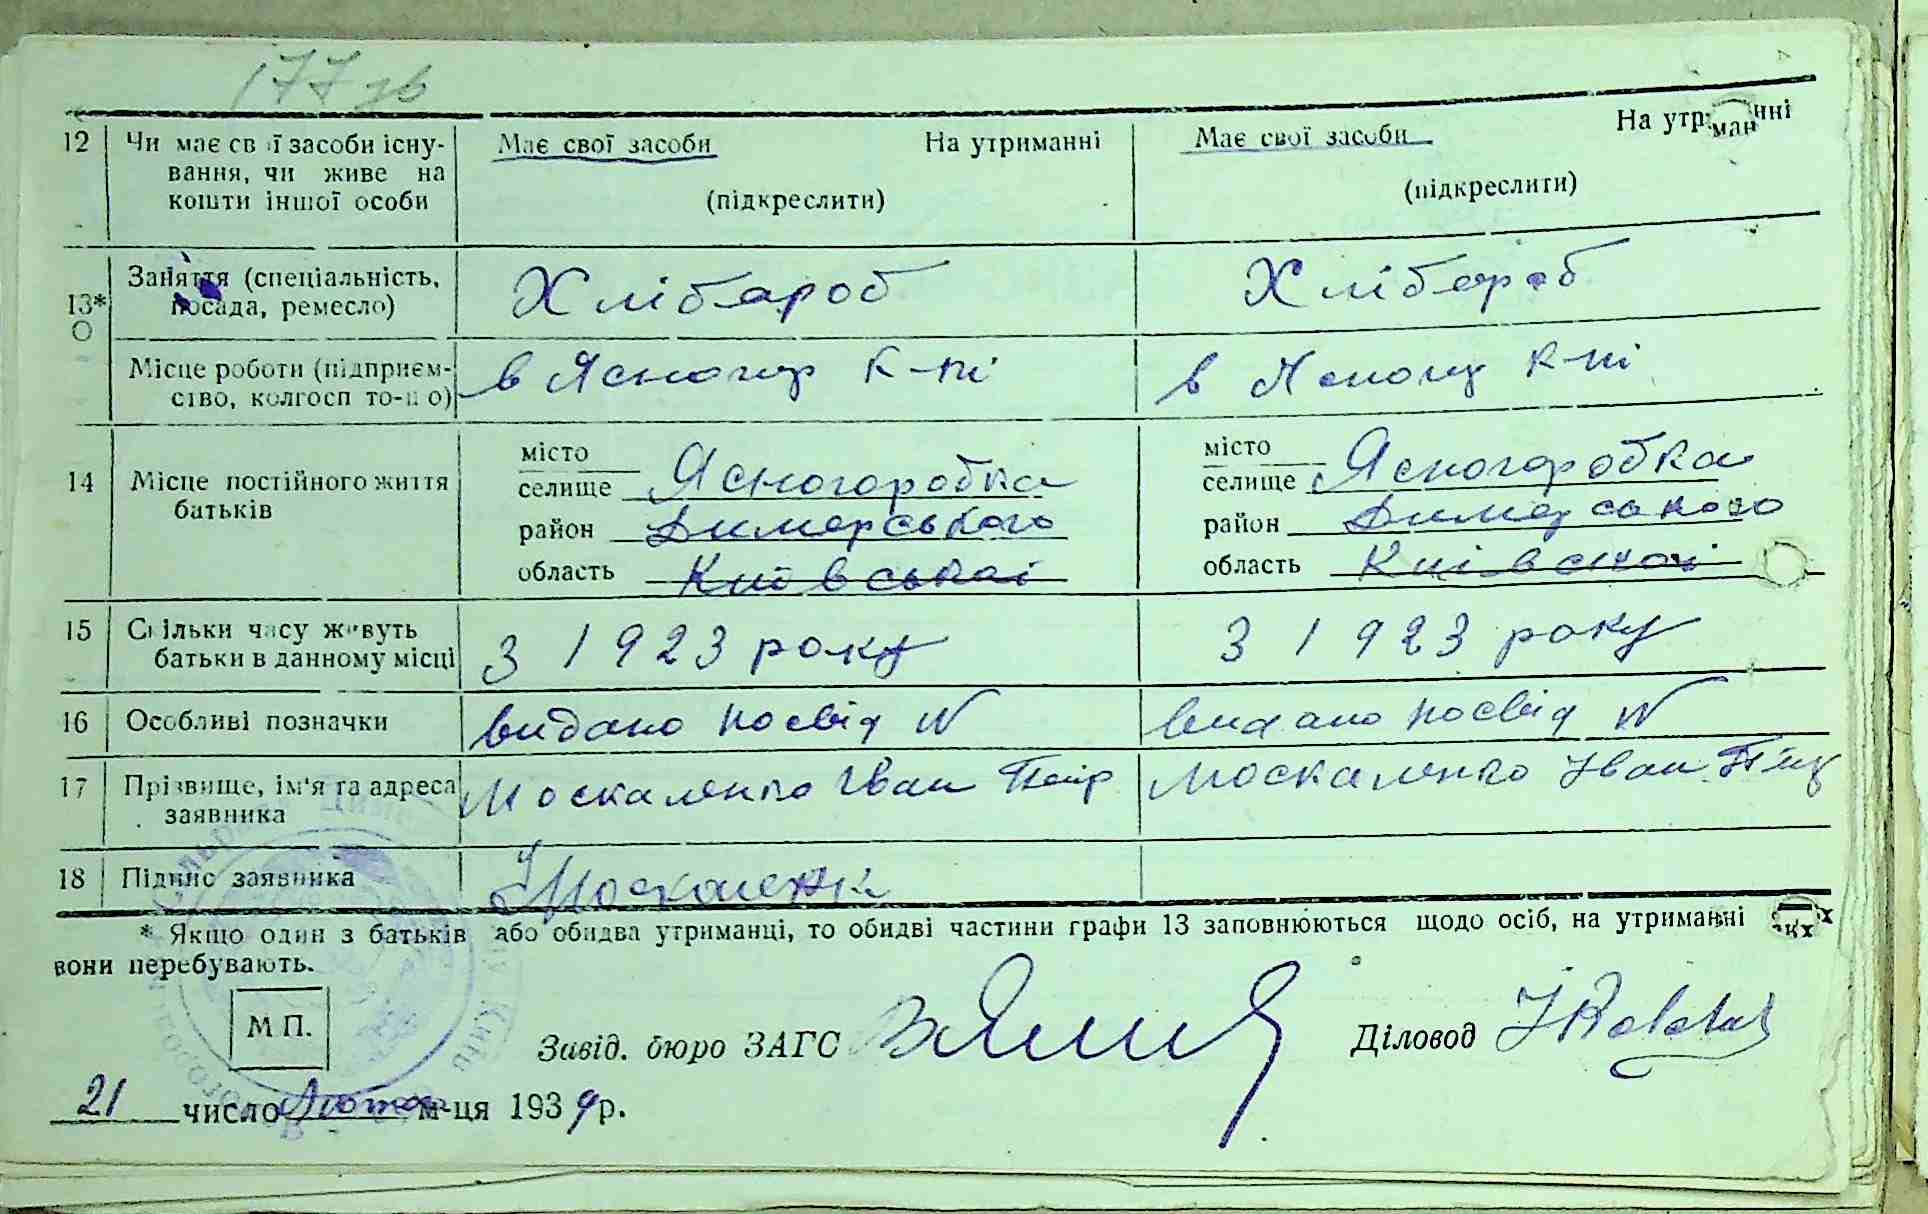 177 зв
12 Чи має свої засоби існу- Має свої засоби На утриманні Має свої засоби На утриманні
вання, чи живе на
кошти іншої особи (підкреслити) (підкреслити)
13* Заняття (спеціальність, Хлібароб Хлібороб
посада, ремесло)
Місце роботи (підприєм- в Ясногор к-пі в к-пі
ство, колгосп то-що)
14 Місце постійного життя місто Ясногоробка місто Ясногоробка
батьків селище селище
район Димерського район Димерського
область Київської область Київської
15 Скільки часу живуть З 1923 року З 1923 року
батьки в данному місці
16 Особливі позначки видано посвід N видано посвід N
17 Прізвище, ім'я та адреса Москаленко Іван Москаленко Іван
заявника
18 Підпис заявника Москаленк
* Якщо один з батьків або обидва утриманці, то обидві частини графи 13 заповнюються щодо осіб, на утриманні яких
вони перебувають.
М П.
Завід. бюро ЗАГС Діловод
21 число Лютого м-ця 1939 р.